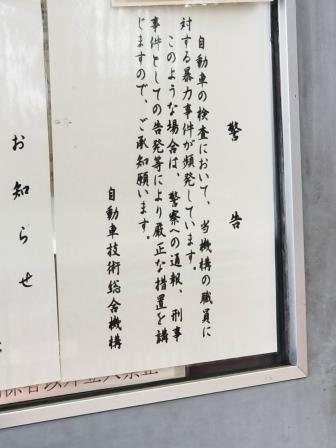 警告
自動車の検査において、当機構の職員に
対する暴力事件が頻発しています。
このような場合は、警察への通報、刑事
事件としての告発等により厳正な措置を講
じますので、ご承知願います。
自動車技術総合機構
お知らせ